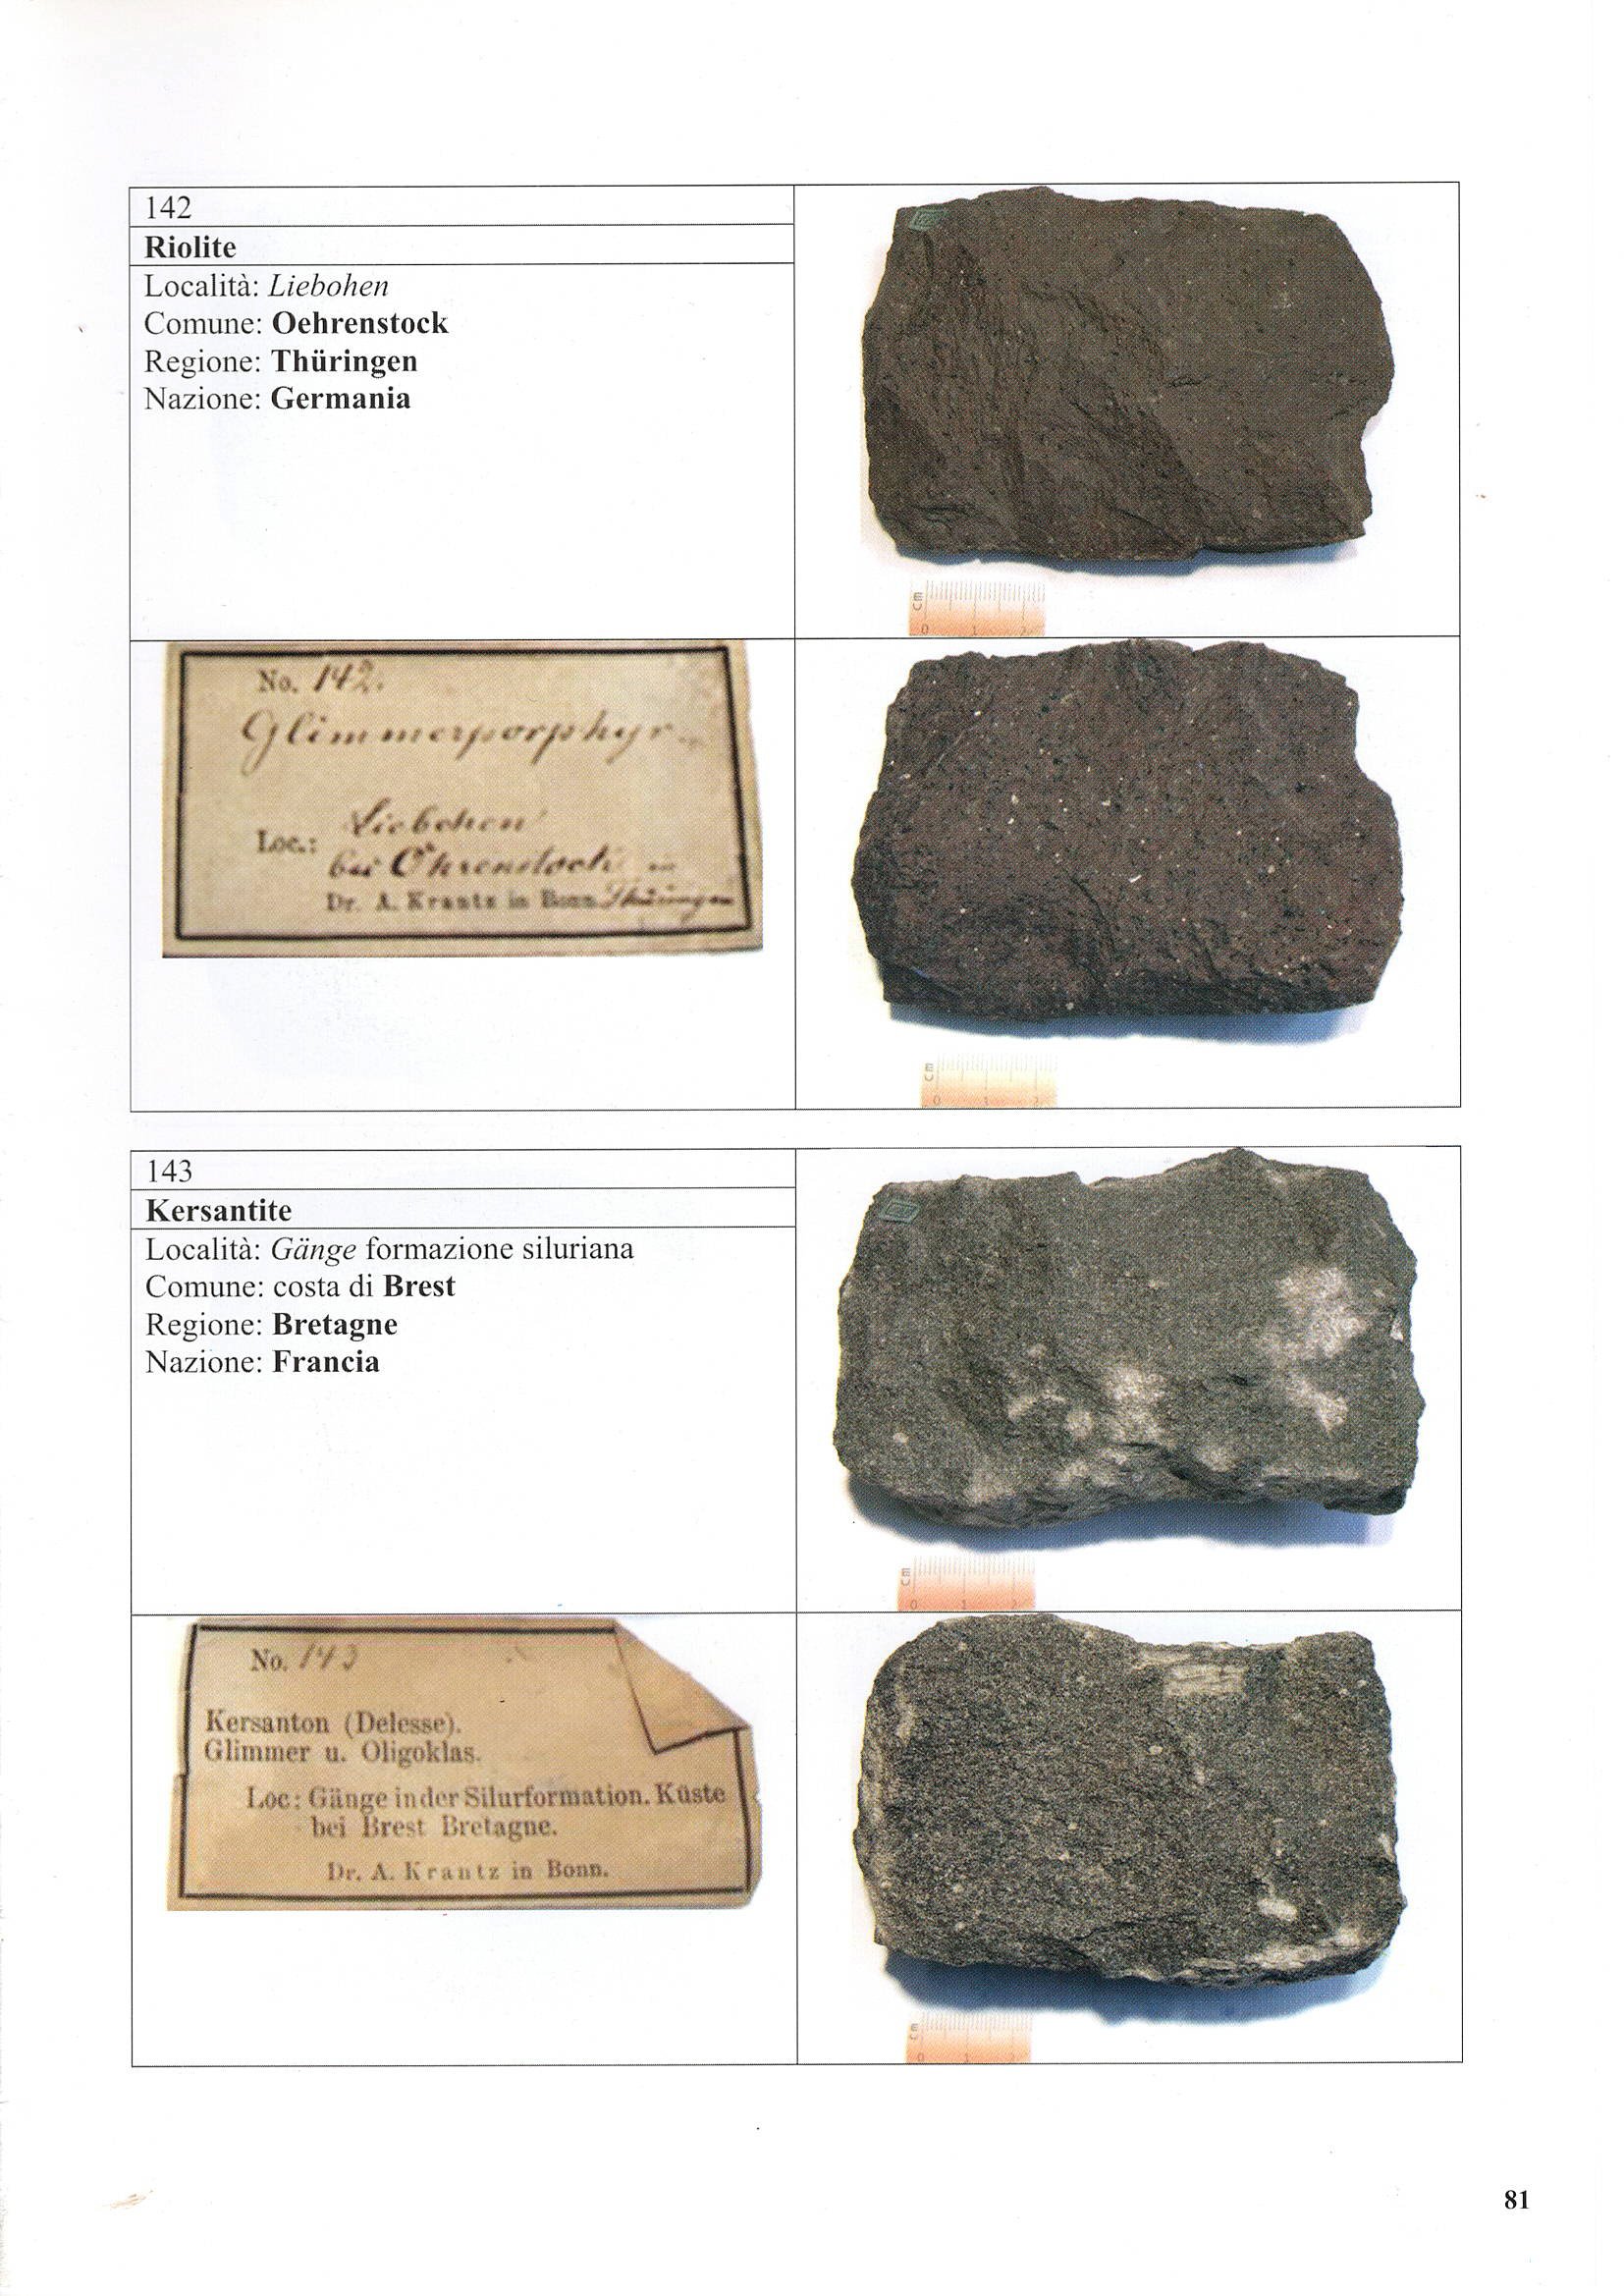 142
Riolite
Località: Liebohen
Comune: Oehrenstock
Regione: Thüringen
Nazione: Germania
cm
0 1 2
No. 142.
Glimmerporphyr
Loc.: Liebohen
bei Öhrenstock in
Dr. A. Krantz in Bonn. Thüringen
cm
0 1 2
143
Kersantite
Località: Gänge formazione siluriana
Comune: costa di Brest
Regione: Bretagne
Nazione: Francia
cm
0 1 2
No. 143
Kersanton (Delesse).
Glimmer u. Oligoklas.
Loc: Gänge in der Silurformation. Küste
bei Brest Bretagne.
Dr. A. Krantz in Bonn.
cm
0 1 2
81